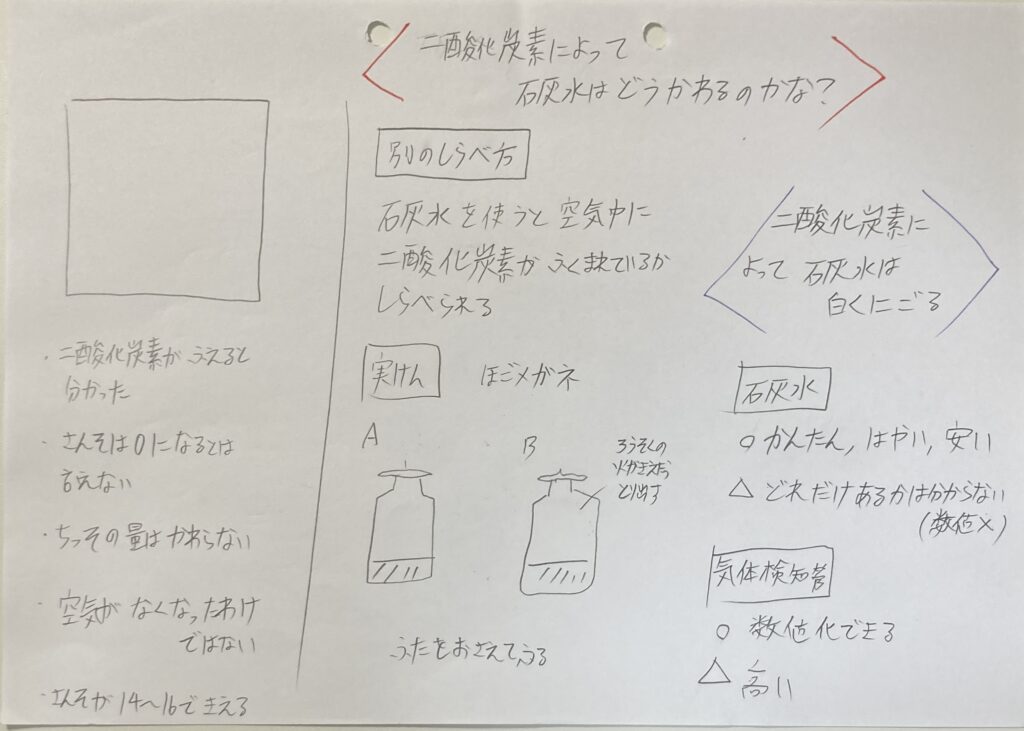 二酸化炭素によって
石灰水はどうかわるのかな?
・二酸化炭素がふえると
分かった
・さんそは0になるとは
言えない
・ちっその量はかわらない
・空気がなくなったわけ
ではない
・さんそが14〜16できえる
別のしらべ方
石灰水を使うと空気中に
二酸化炭素がふくまれているか
しらべられる
実けん
ほごメガネ
A
B
ろうそくの
火がきえたら
とり出す
ふたをおさえてふる
二酸化炭素に
よって石灰水は
白くにごる
石灰水
○かんたん,はやい,安い
△どれだけあるかは分からない
(数値×)
気体検知管
○数値化できる
△高い